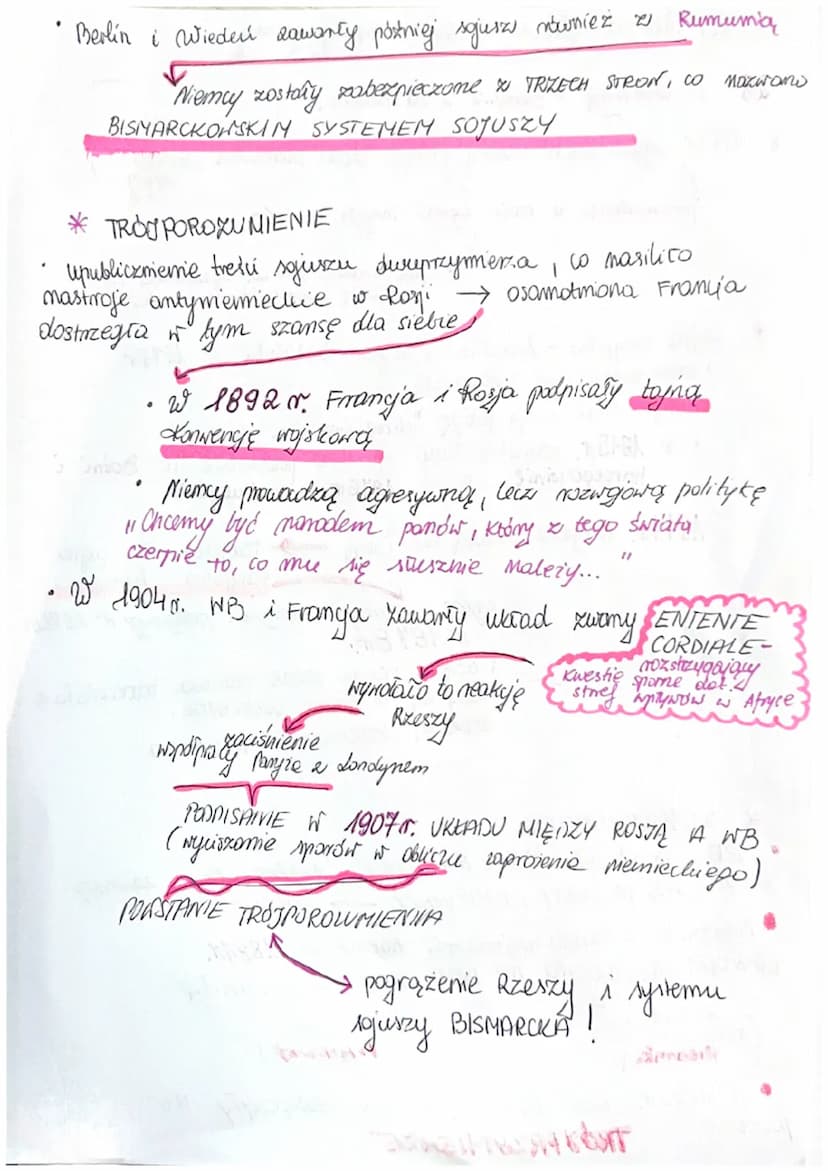 • Berlin i Wiedeń zawarły później sojusz również z Rumunią
Niemcy zostały zabezpieczone z TRZECH STRON, co nazwano
BISMARCKOWSKIM SYSTEMEM SOJUSZY
* TRÓJPOROZUMIENIE
• upublicznienie treści sojuszu dwuprzymierza, co nasiliło
nastroje antyniemieckie w Rosji → osamotniona Francja
dostrzegła w tym szansę dla siebie
• W 1892 r. Francja i Rosja podpisały tajną
konwencję wojskową
• Niemcy prowadzą agresywną, lecz rozwojową politykę
"Chcemy być narodem panów, który z tego świata
czerpie to, co mu się słusznie należy..."
• W 1904 r. WB i Francja zawarły układ zwany ENTENTE
CORDIALE -
rozstrzygający
kwestie sporne dot.
stref wpływów w Afryce
wywołało to reakcję
Rzeszy
zaciśnienie
współpracy Paryża z Londynem
PODPISANIE W 1907 r. UKŁADU MIĘDZY ROSJĄ A WB
(wyciszenie sporów w obliczu zagrożenia niemieckiego)
POWSTANIE TRÓJPOROZUMIENIA
→ pogrążenie Rzeszy i systemu
sojuszy BISMARCKA!